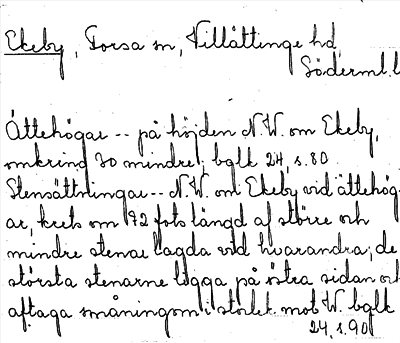 Ekeby, Torsa sn, Villåttinge hd,
Söderml. l
Ättehögar -- på höjden N.W. om Ekeby,
omkring 30 mindre; bglk 24, s. 80.
Stensättningar -- N.W. om Ekeby vid ättehög-
ar, krets om 72 fots längd af större och
mindre stenar lagda vid hvarandra; de
största stenarne ligga på östra sidan och
aftaga småningom i storlek mot W. bglk
24, s. 90